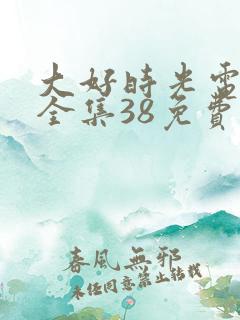 大好時光電
全集38免費
春風無邪
未经同意禁止转载